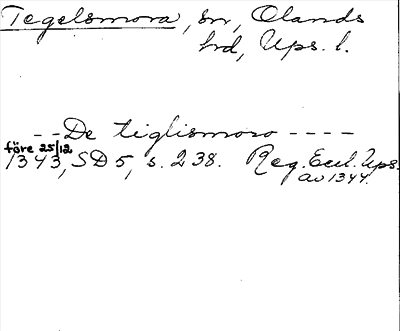 Tegelsmora, sn, Olands
hd, Ups. l.
-- De tiglismoso ----
före 25/12
1343, SD 5, s. 238. Reg. Eccl. Ups.
av 1344.